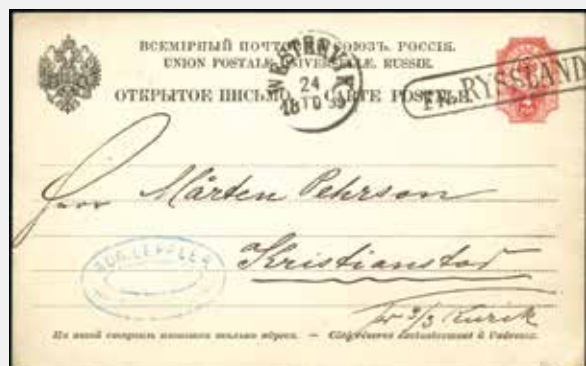 ВСЕМІРНЫЙ ПОЧТОВЫЙ СОЮЗЪ. РОССІЯ.
UNION POSTALE UNIVERSELLE. RUSSIE.
ОТКРЫТОЕ ПИСЬМО. — CARTE POSTALE.
24
10
FR. RYSSLAND
Herr Mårten Pehrson
Kristianstad
pr 3/3 Rurik
LEFFLER
На этой сторонѣ пишется только адресъ. — Côté réservé exclusivement à l'adresse.